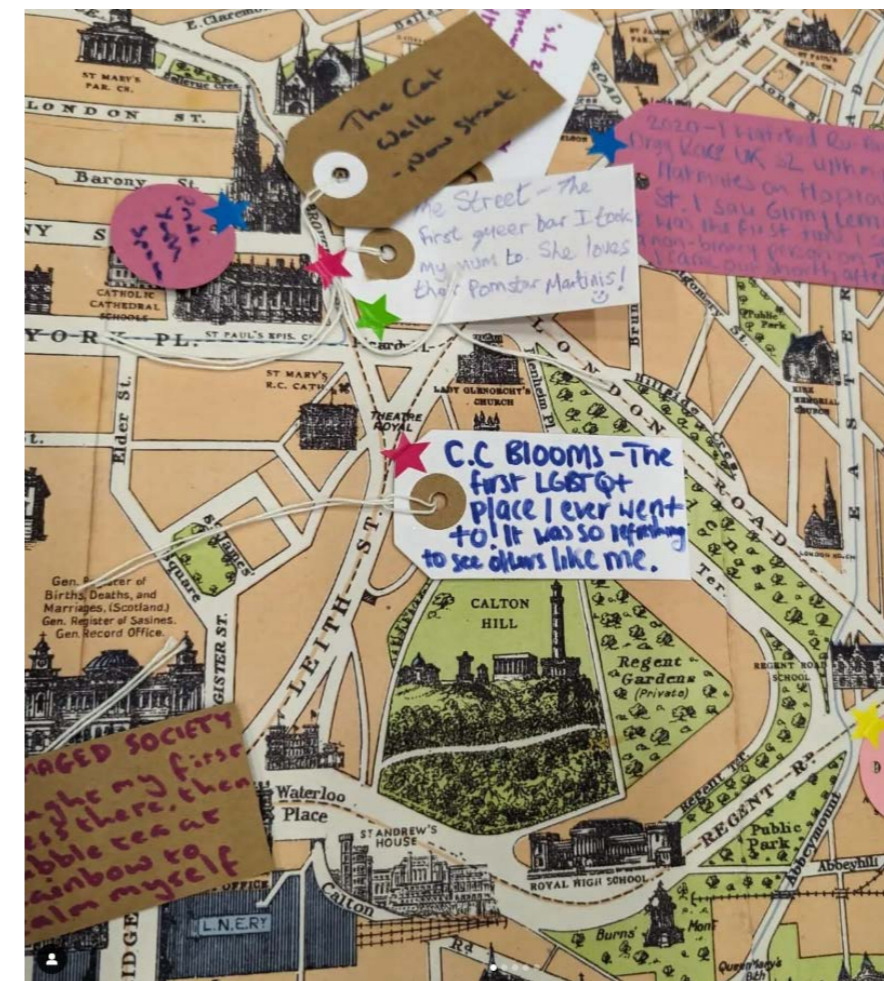 E. Claremo
ST MARY'S
PAR. CH.
Bellevue Cres.
LONDON ST.
Barony St.
The Cat
Walk
- New Street.
ROAD
2020 - I watched Ru
Drag Race UK S2 with
flatmates on
St. I saw Ginny Lem
was the first time I
non-binary person on T
I came out shortly after
The Street - The
first queer bar I took
my mum to. She loves
their Pornstar Martinis!
Pink
Space
CATHOLIC
CATHEDRAL
SCHOOLS
YORK PL.
ST PAUL'S EPIS. C
Picardy
ST MARY'S
R.C. CATH.
LADY GLENORCHY'S
CHURCH
THEATRE
ROYAL
Elder St.
LONDON ROAD
Hillside
Cres.
Public
Park
KIRK
MEMORIAL
CHURCH
EASTER
C.C Blooms - The
first LGBTQ+
place I ever went
to! It was so refreshing
to see others like me.
LEITH ST.
St. James'
Square
Gen. Register of
Births, Deaths, and
Marriages, (Scotland.)
Gen. Register of Sasines.
Gen. Record Office.
GISTER ST.
Ter.
CALTON
HILL
Regent
Gardens
(Private)
REGENT ROAD
SCHOOL
MAGED SOCIETY
ught my first
ess there, then
bble tea at
ainbow to
alm myself
Waterloo
Place
ST ANDREW'S
HOUSE
ROYAL HIGH SCHOOL
Regent Ter.
REGENT RD.
Public
Park
Abbeymount
Abbeyhill
OFFICE
L.N.E.RY
Calton
Rd
Burns' Mont
Queen Mary's
Bth